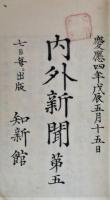 慶應四年戊辰五月十五日
内外新聞 第五
七日每出版
知新館